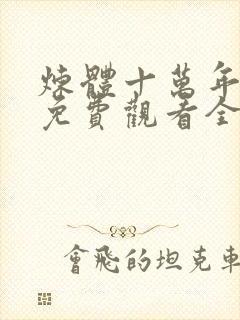 煉體十萬年
免費觀看全
會飛的坦克車